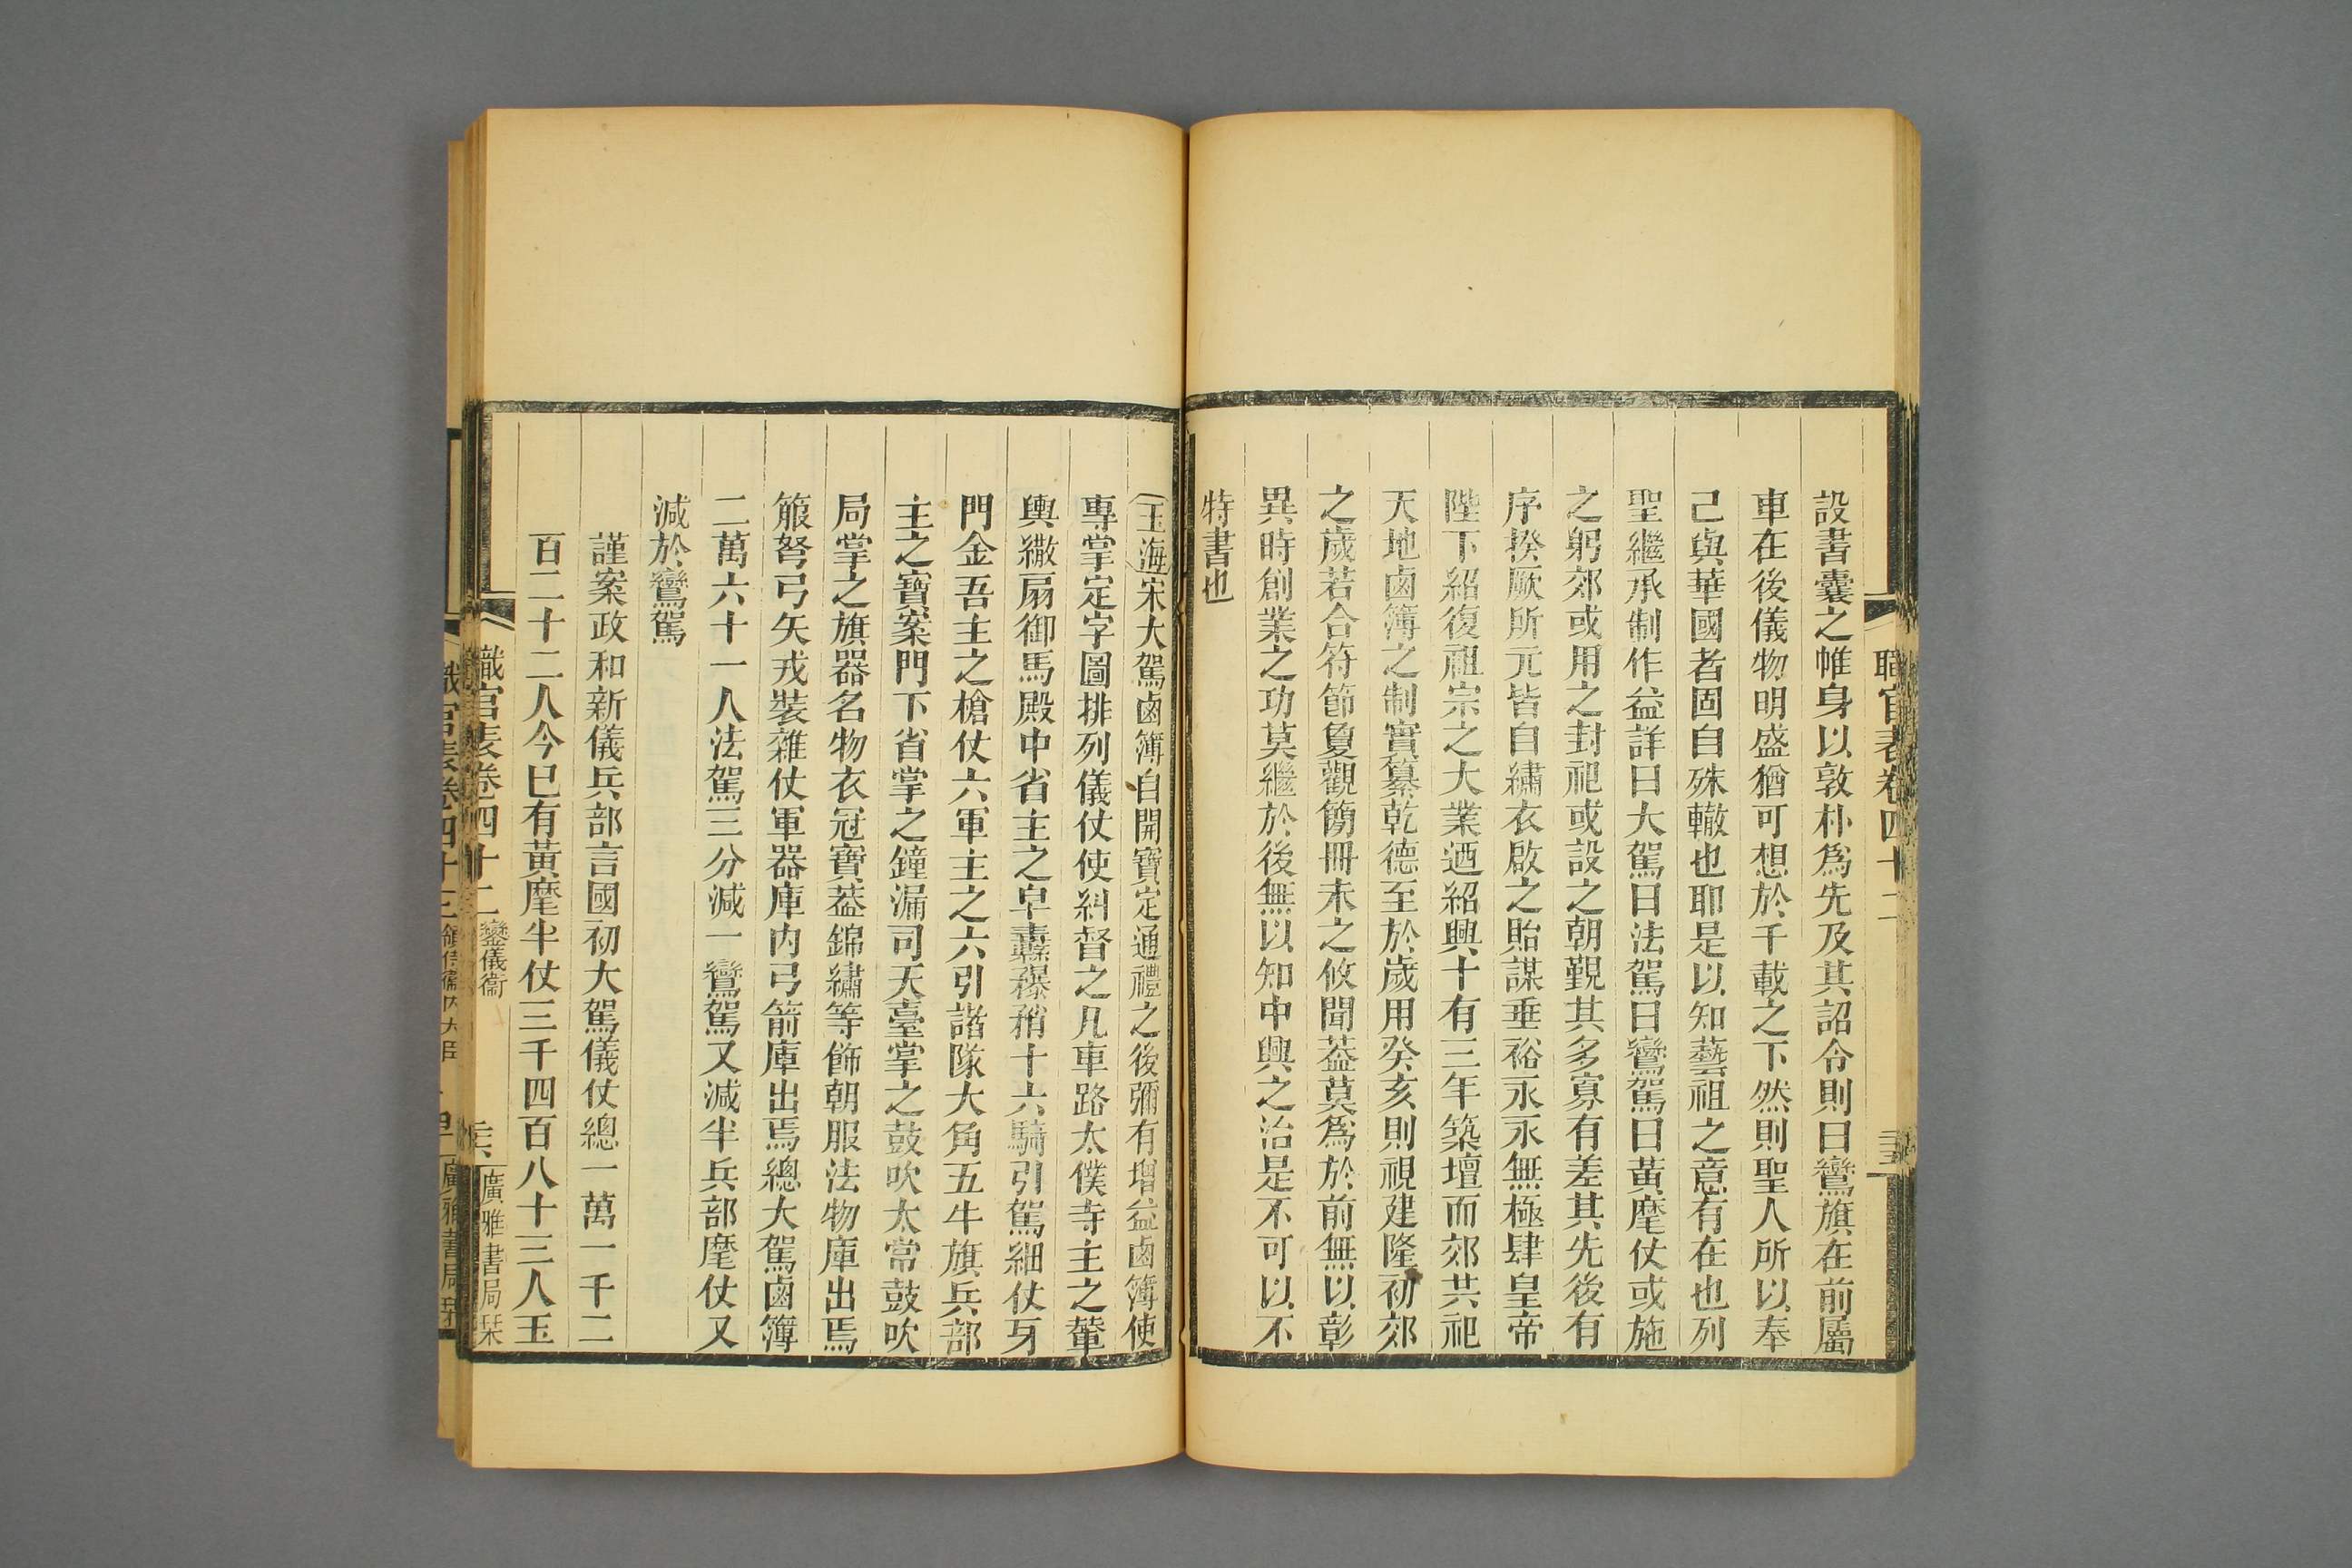 職官表卷四十二
設書囊之帷身以敦朴爲先及其詔令則曰鸞旗在前屬
車在後儀物明盛猶可想於千載之下然則聖人所以奉
己與華國者固自殊轍也耶是以知藝祖之意有在也列
聖繼承制作益詳曰大駕曰法駕曰鸞駕曰黃麾仗或施
之躬郊或用之封祀或設之朝覲其多寡有差其先後有
序揆厥所元皆自繡衣啟之貽謀垂裕永永無極肆皇帝
陛下紹復祖宗之大業迺紹興十有三年築壇而郊共祀
天地鹵簿之制實纂乾德至於歲用癸亥則視建隆初郊
之歲若合符節敻觀簡冊未之攸聞葢莫爲於前無以彰
異時創業之功莫繼於後無以知中興之治是不可以不
特書也
玉海宋大駕鹵簿自開寶定通禮之後彌有增益鹵簿使
專掌定字圖排列儀仗使糾督之凡車路太僕寺主之輦
輿繖扇御馬殿中省主之皁纛䂍矟十六騎引駕細仗牙
門金吾主之槍仗六軍主之六引諸隊大角五牛旗兵部
主之寶案門下省掌之鐘漏司天臺掌之鼓吹太常鼓吹
局掌之旗器名物衣冠寶葢錦繡等飾朝服法物庫出焉
箙弩弓矢戎裝雜仗軍器庫内弓箭庫出焉總大駕鹵簿
二萬六十一人法駕三分減一鸞駕又減半兵部麾仗又
減於鸞駕
謹案政和新儀兵部言國初大駕儀仗總一萬一千二
百二十二人今已有黃麾半仗三千四百八十三人玉
職官表卷四十二 鑾儀衞 廣雅書局栞